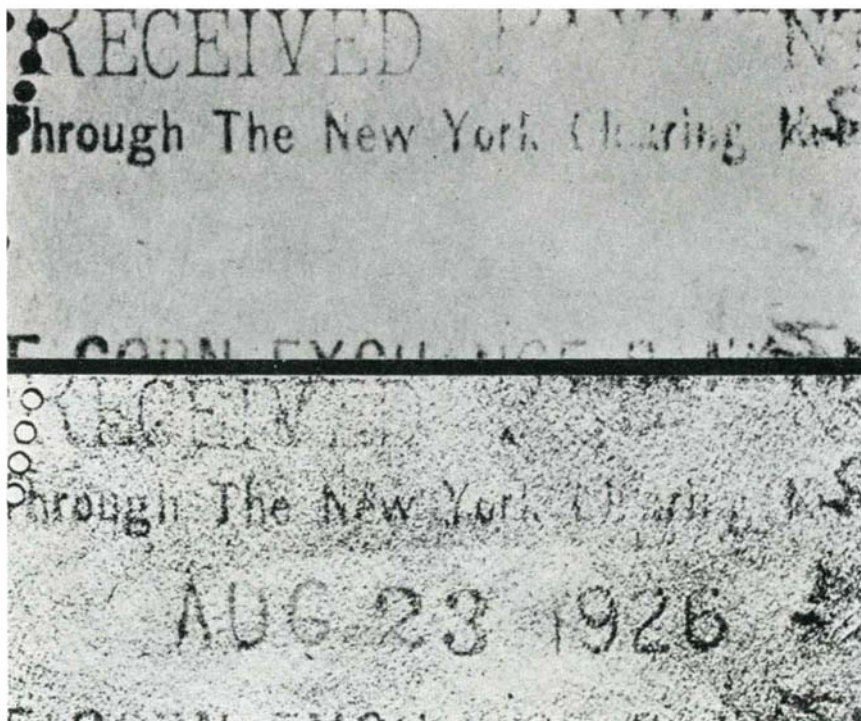 RECEIVED
Through The New York Clearing
CORN EXCHANGE
RECEIVED
Through The New York Clearing
AUG 23 1926